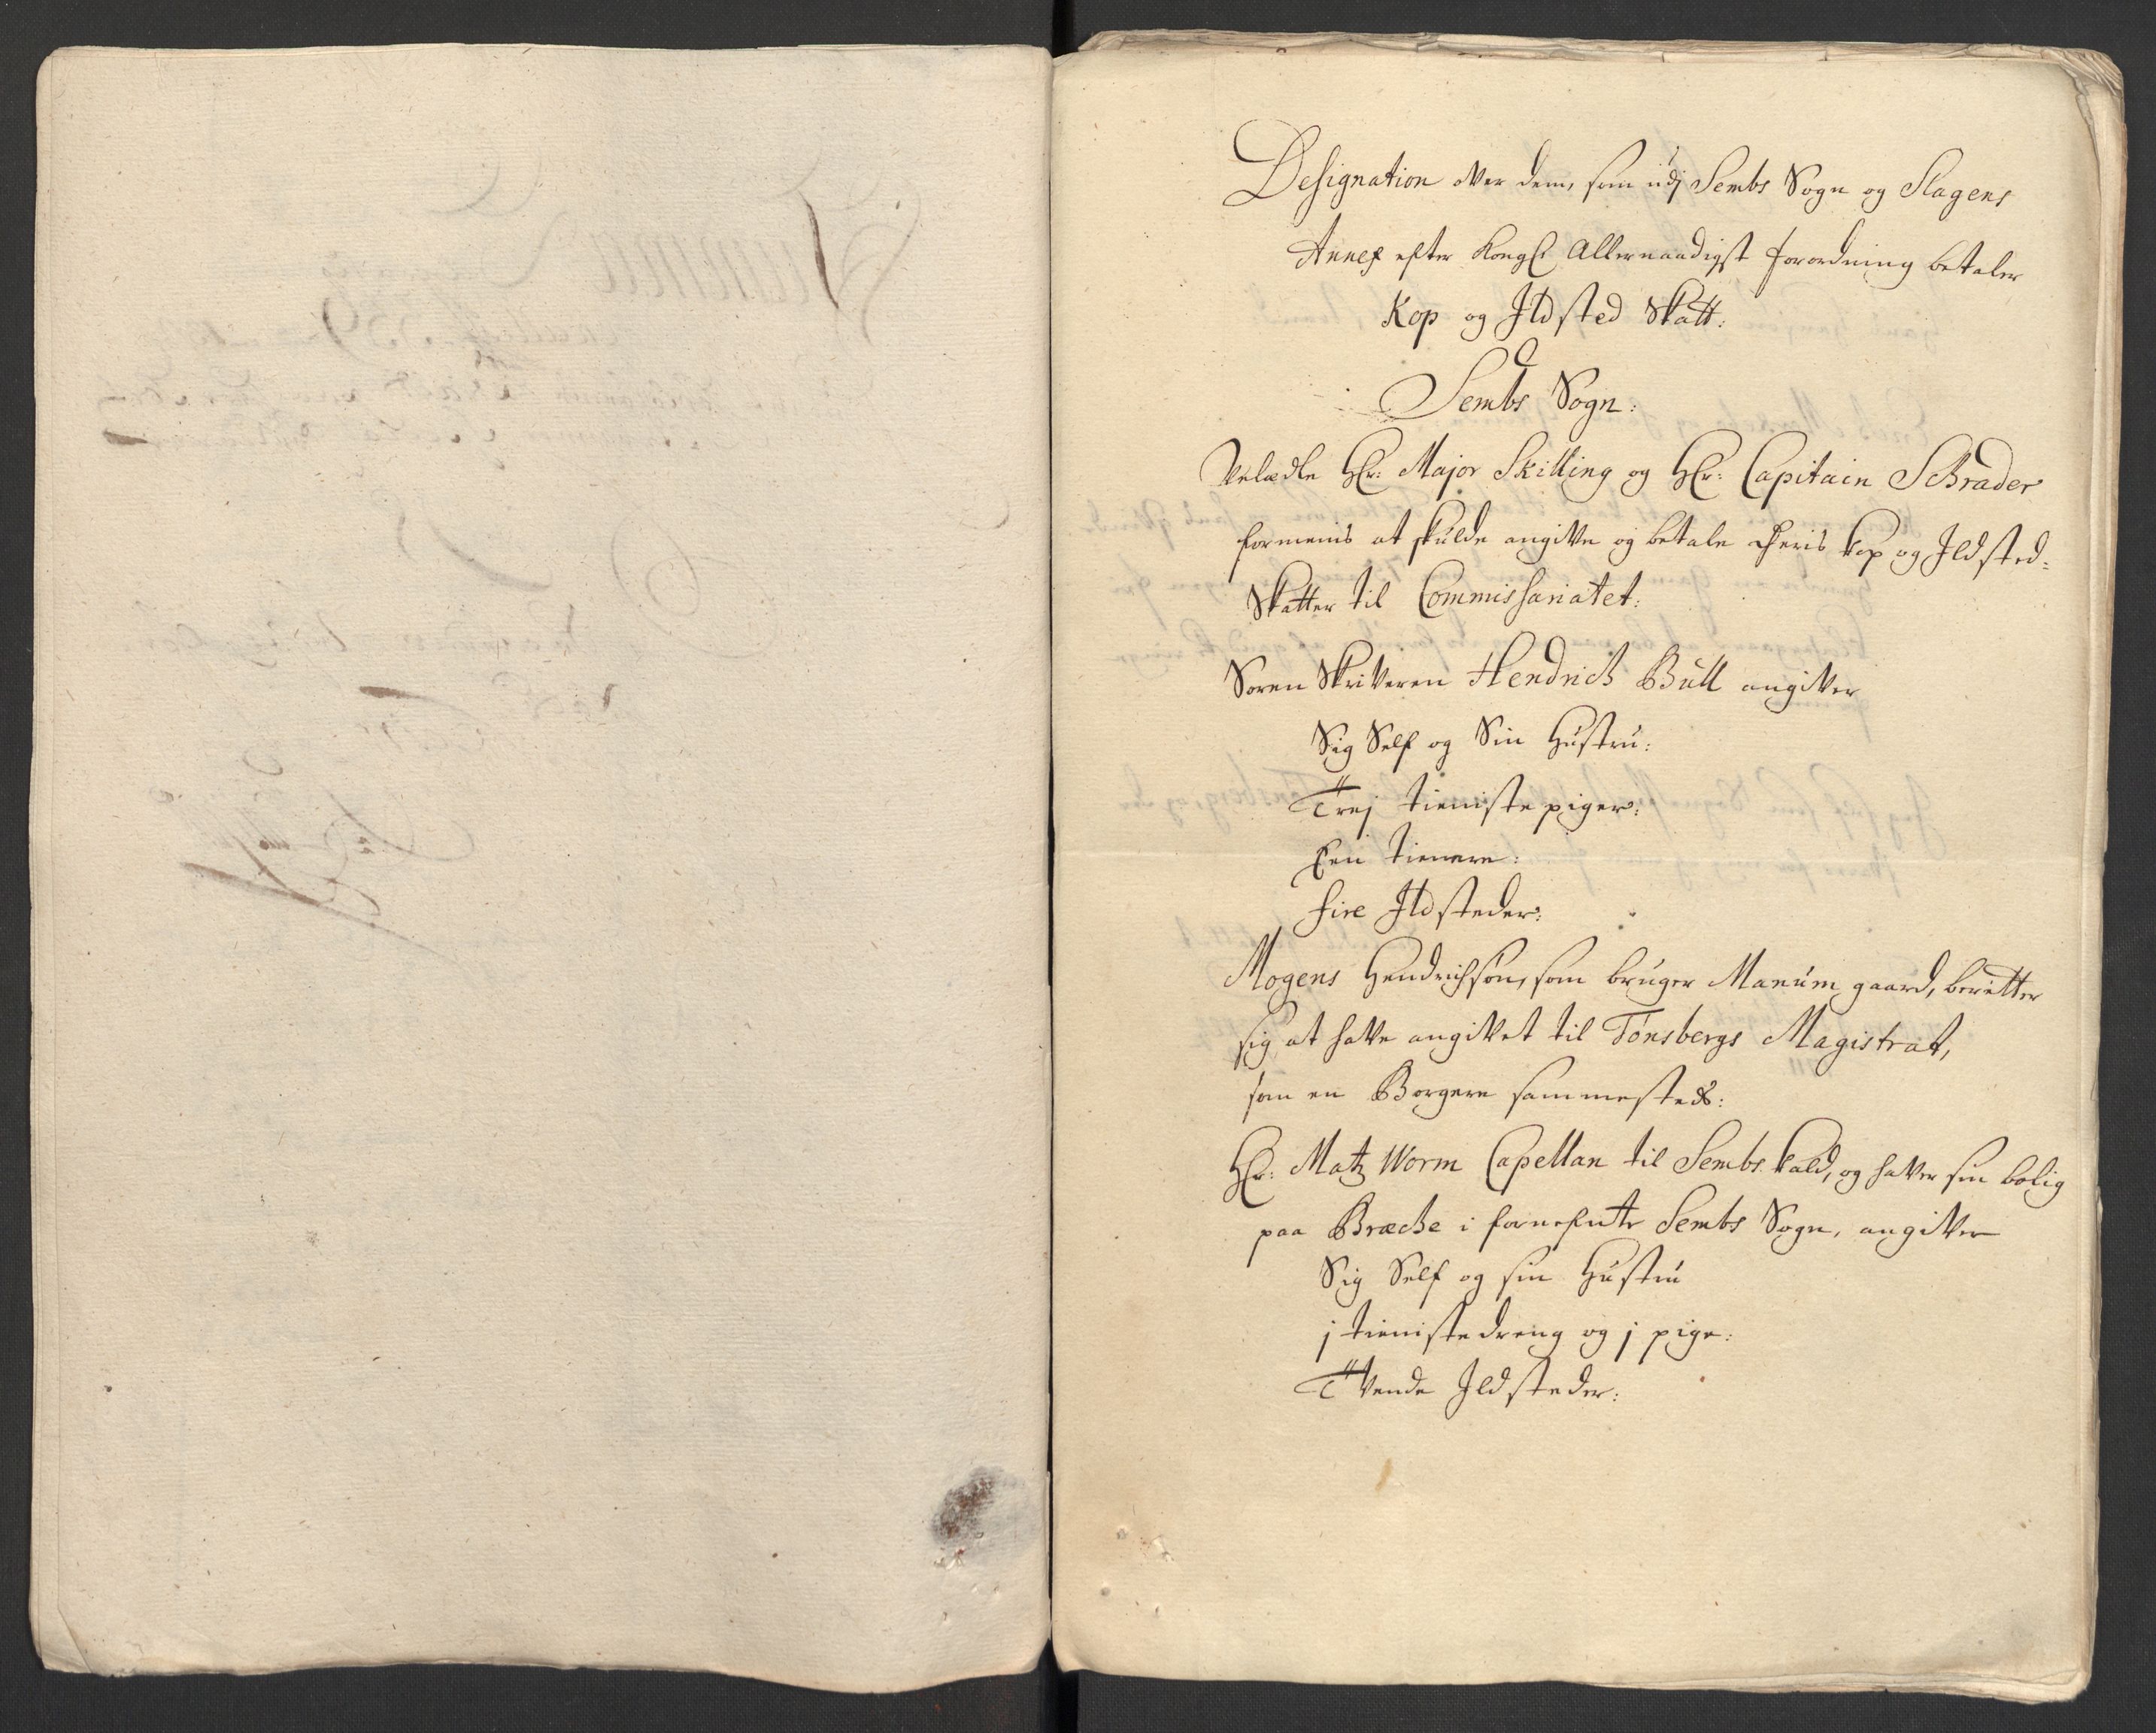 Designation over dem, som udj Sembs Sogn og Slagens
Annex efter Kongl Allernaadigst forordning betaler
Kop og Ildsted Skatt:
Sembs Sogn:
Velædle Hr: Major Skilling og Hr: Capitain Schrader
formenis at skulde angive og betale deris kop og Ildsted-
Skatter til Commissariatet:
Soren Skriveren Hendrich Bull angiver
Sig Self og Sin Hustru:
Trej tieniste piger:
Een tienere:
fire Ildsteder:
Mogens Hendrichsøn, som bruger Manum gaard, beretter
sig at have angivet til Tønsbergs Magistrat,
som en Borgere sammesteds:
Hr: Matz Worm Capellan til Sembs kald, og haver sin bolig
paa Bræche i fornefnte Sembs Sogn, angiver
Sig Self og sin Hustru
j tieniste dreng og j pige:
Tvende Ildsteder: